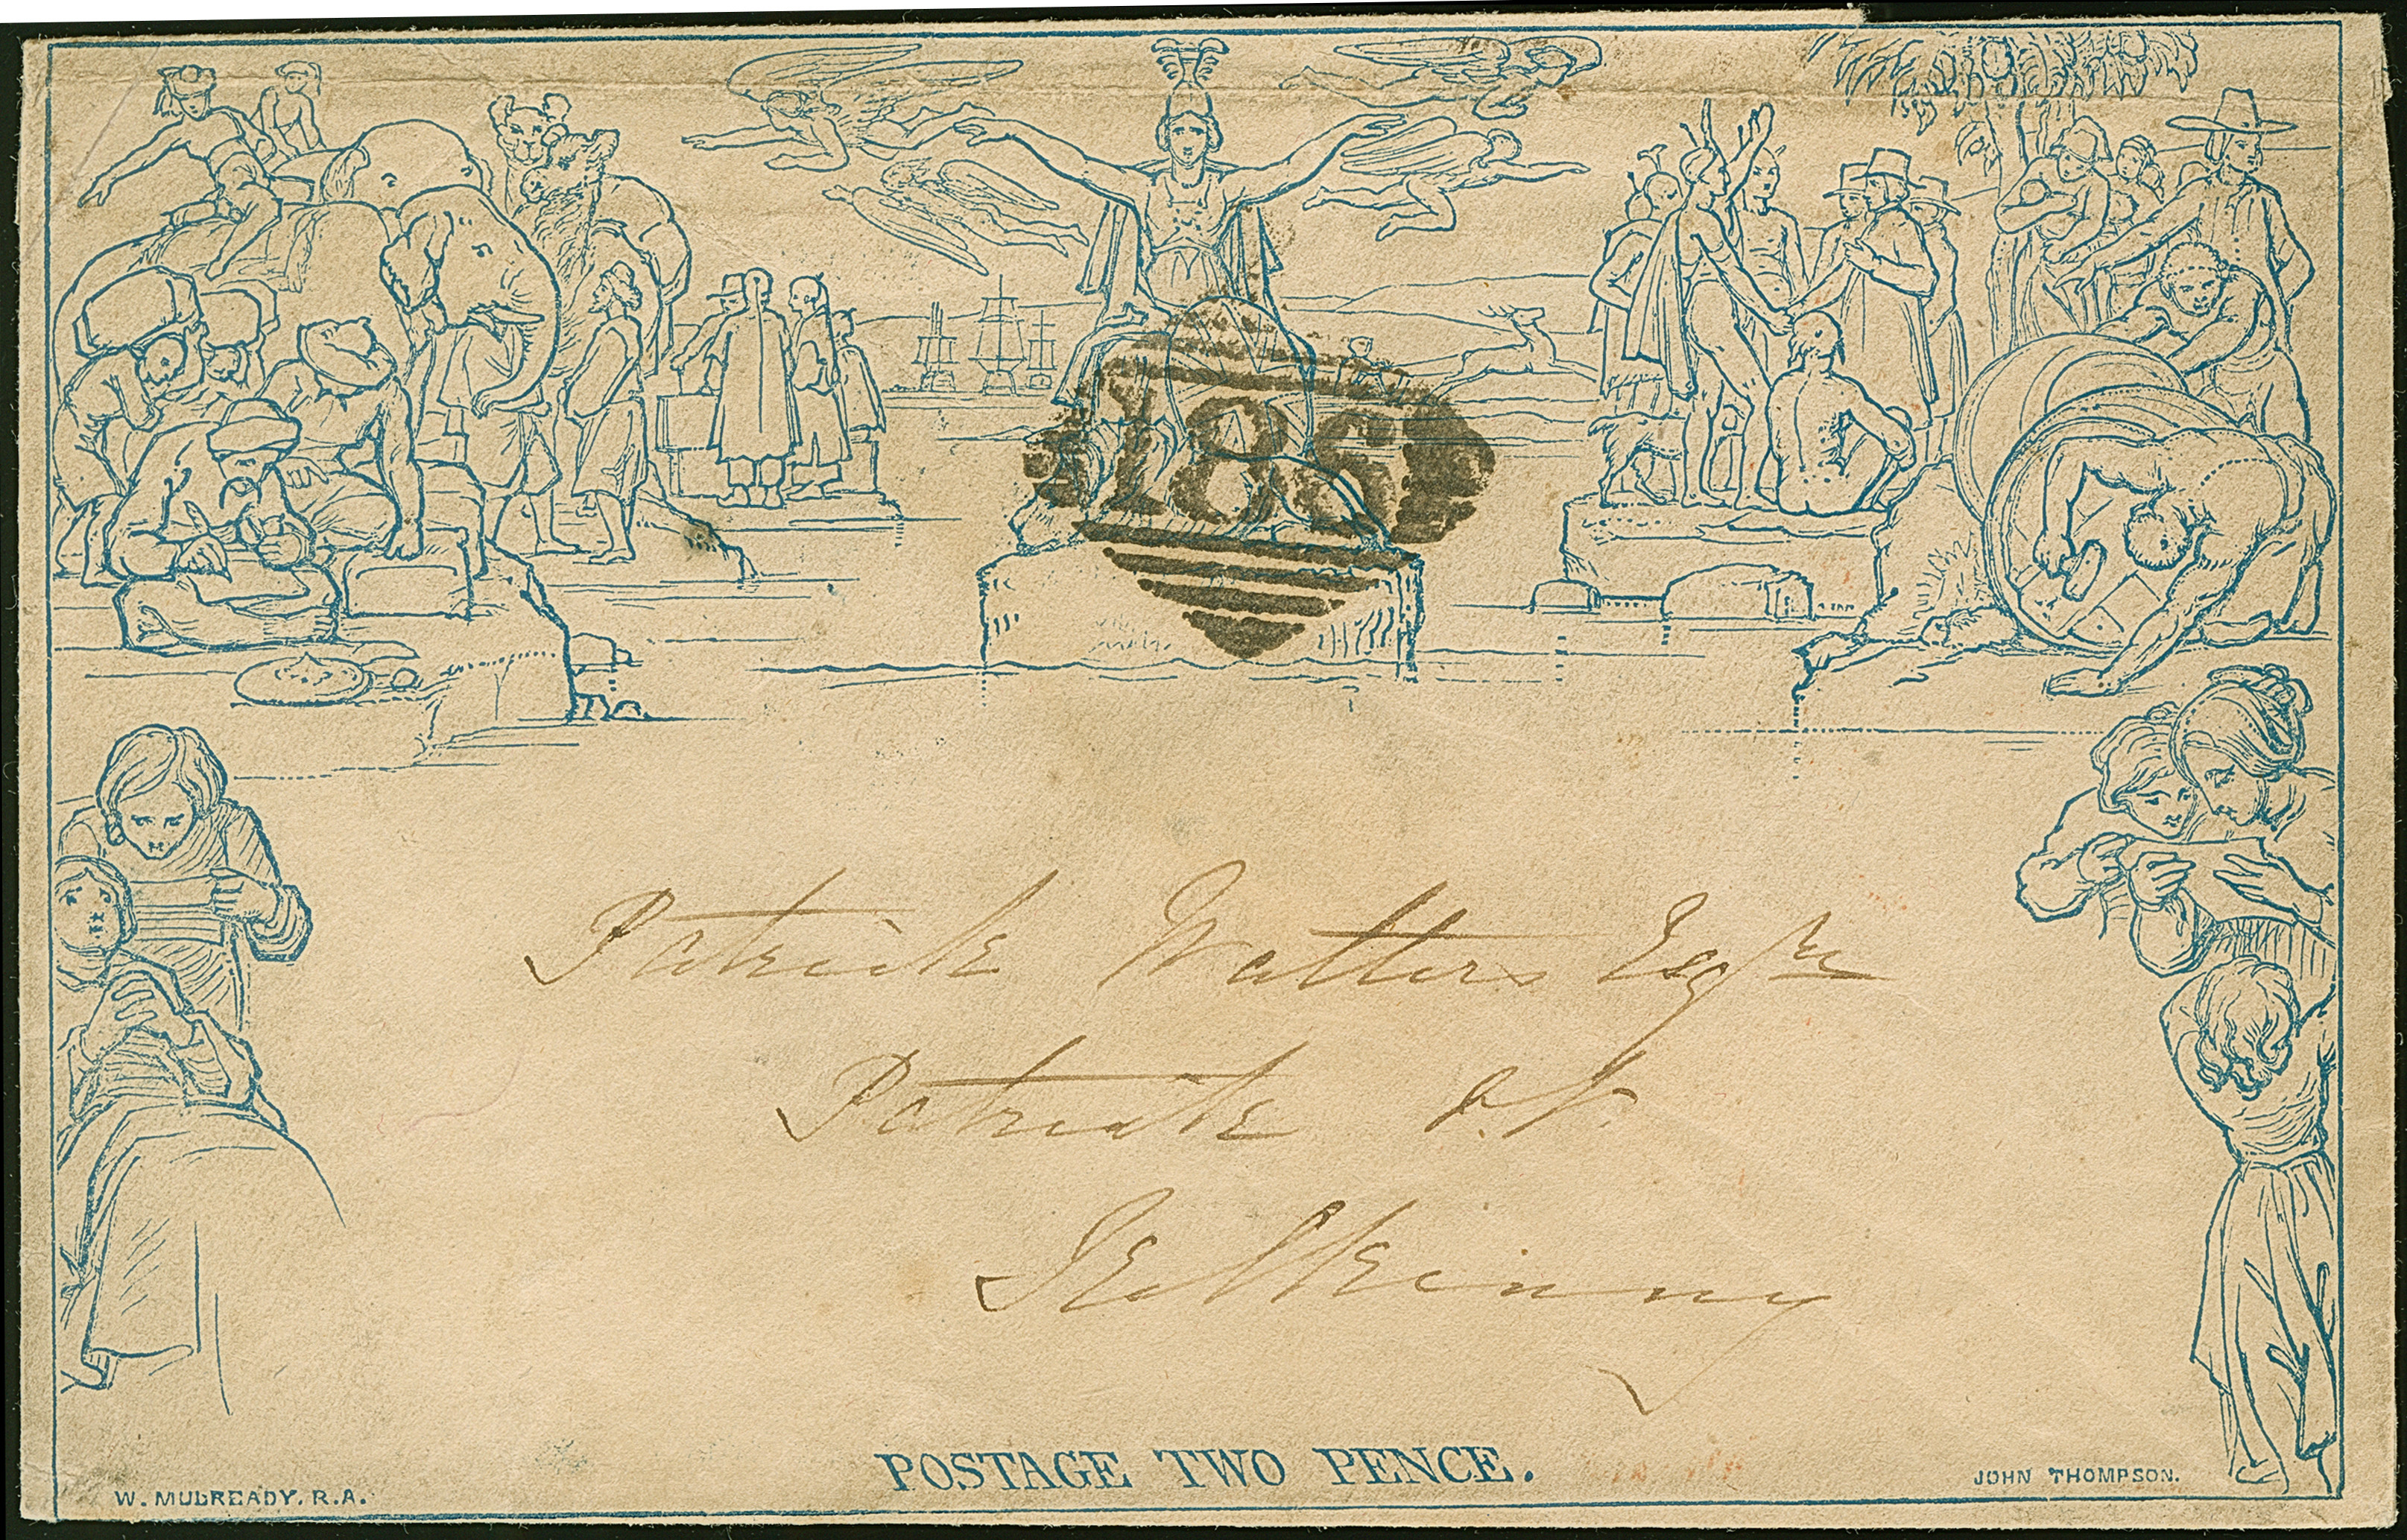 186
Patrick Watters Esqre
Patrick St.
Kilkenny
POSTAGE TWO PENCE.
W. MULREADY. R.A.
JOHN THOMPSON.